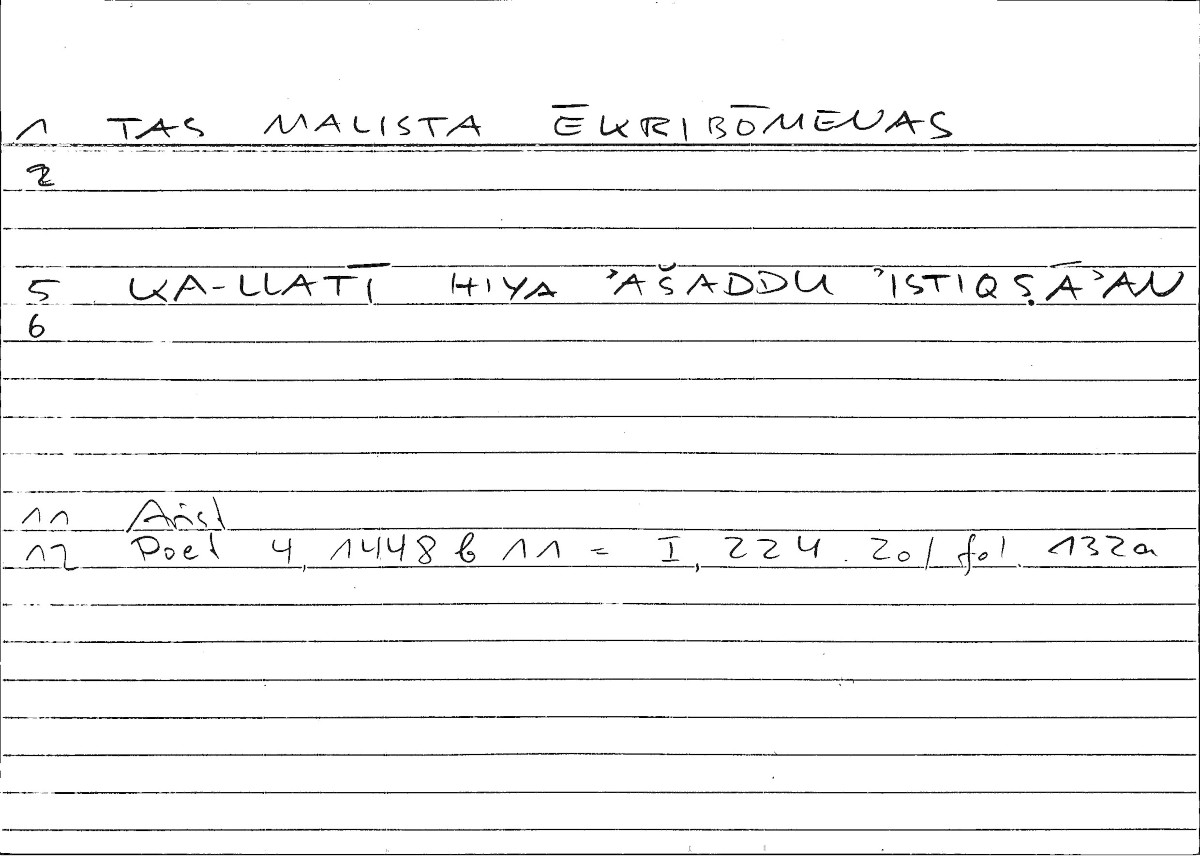 1 TAS MALISTA ĒKRIBŌMENAS
2
5 KA-LLATĪ HIYA ʾAŠADDU ʾISTIQṢĀʾAN
6
11 Arist
12 Poet 4, 1448 b 11 = I, 224. 20 / fol. 132a